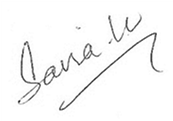 Savia W